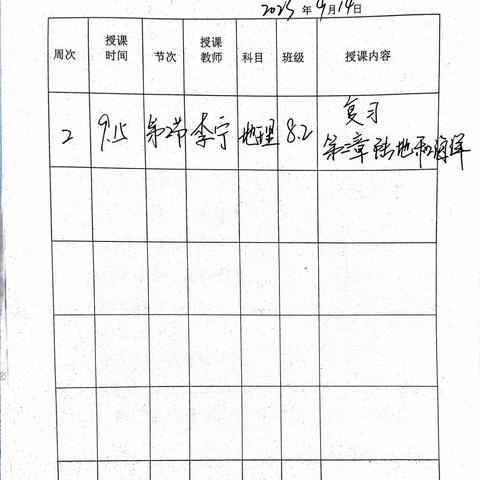 2025年9月14日
周次 授课时间 节次 授课教师 科目 班级 授课内容
2 9.15 第2节 李宁 地理 8.2 复习
第二章 陆地和海洋